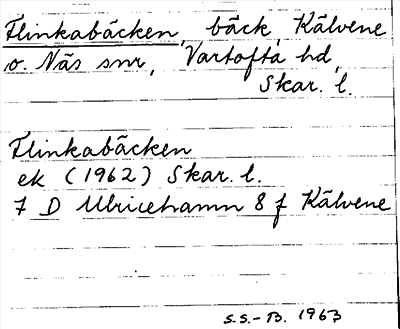 Flinkabäcken, bäck, Kälvene
o. Näs snr, Vartofta hd,
Skar. l.
Flinkabäcken
ek (1962) Skar. l.
7 D Ulricehamn 8 f Kälvene
S.S.-B. 1963